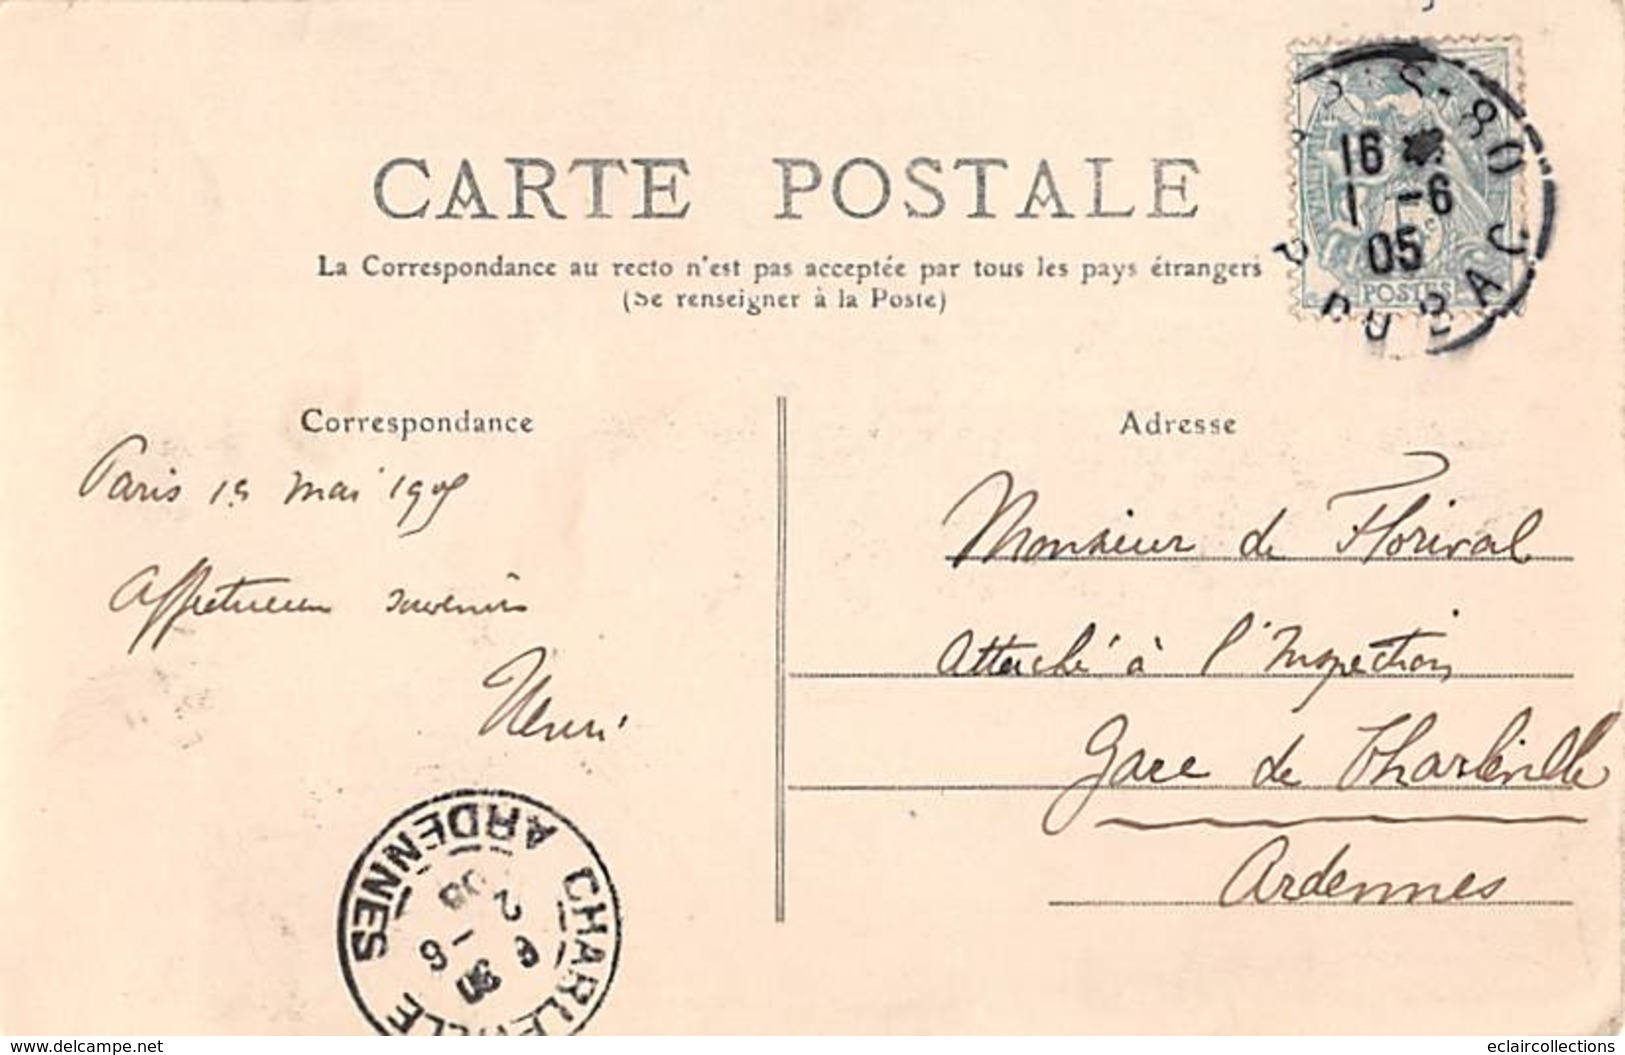 CARTE POSTALE
La Correspondance au recto n'est pas acceptée par tous les pays étrangers
(Se renseigner à la Poste)
PARIS-80
16
1 -6
05
R. DU BAC
POSTES
Correspondance
Paris 1er mai 1905
Affectueux souvenirs
Henri
CHARLEVILLE
ARDENNES
2 -6
05
Adresse
Monsieur de Florival
Attaché à l'Inspection
Gare de Charleville
Ardennes
www.delcampe.net
eclaircollections